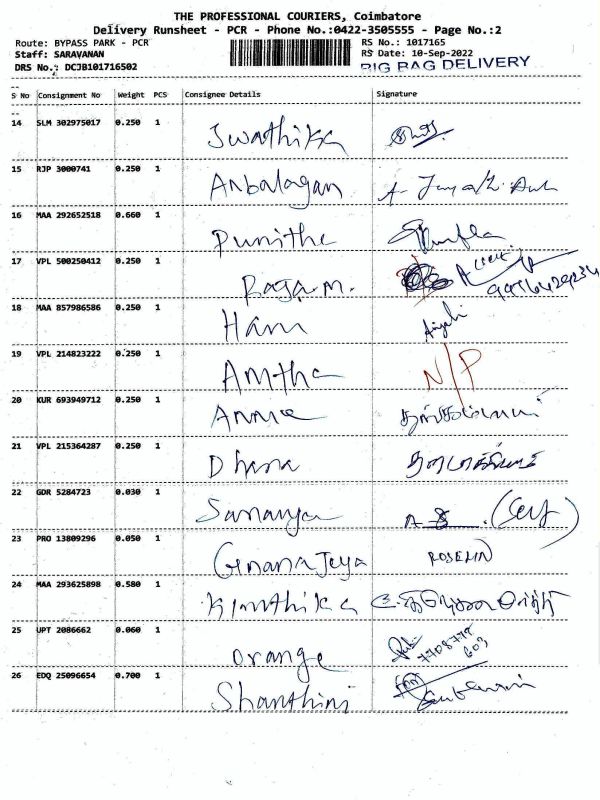 THE PROFESSIONAL COURIERS, Coimbatore
Delivery Runsheet - PCR - Phone No.:0422-3505555 - Page No.:2
Route: BYPASS PARK - PCR
RS No.: 1017165
Staff: SARAVANAN
RS Date: 10-Sep-2022
DRS No.: DCJB101716502
BIG BAG DELIVERY
S No Consignment No Weight PCS Consignee Details Signature
14 SLM 302975017 0.250 1 Swathika
15 RJP 3000741 0.250 1 Anbalagan
16 MAA 292652518 0.660 1 Punitha
17 VPL 500250412 0.250 1 Raja.m.
18 MAA 857986586 0.250 1 Hani
19 VPL 214823222 0.250 1 Amtha N/P
20 KUR 693949712 0.250 1 Annie
21 VPL 215364287 0.250 1 Dhana
22 GDR 5284723 0.030 1 Saranya
23 PRO 13809296 0.050 1 Gnana Jeya ROSELIN
24 MAA 293625898 0.580 1 Kiruthika
25 UPT 2086662 0.060 1 orange 7708779
603
26 EDQ 25096654 0.700 1 Shanthini